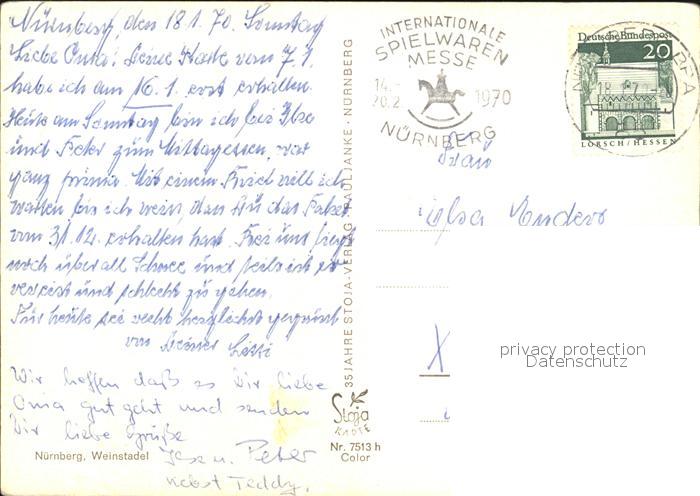 Nürnberg, den 18.1.70. Sonntag
Liebe Oma! Deine Karte vom 7.1.
habe ich am 16.1. erst erhalten.
Heute am Sonntag bin ich bei Ilse
und Peter zum Mittagessen, war
ganz prima. Mit einem Brief will ich
warten bis ich weiß, daß Du das Paket
vom 31.12. erhalten hast. Bei uns liegt
noch überall Schnee und teils ist es
vereist und schlecht zu gehen.
Für heute sei recht herzlichst gegrüßt
von Deiner Betti
Wir hoffen daß es Dir liebe
Oma gut geht und senden
Dir liebe Grüße
Ilse u. Peter
nebst Teddy.
Nürnberg, Weinstadel
35 JAHRE STOJA-VERLAG PAUL JANKE · NÜRNBERG
Stoja
KARTE
Nr. 7513 h
Color
INTERNATIONALE
SPIELWAREN
MESSE
14.-
20.2.
1970
NÜRNBERG
Deutsche Bundespost
20
LORSCH/HESSEN
Frau
Elsa Enders
privacy protection
Datenschutz